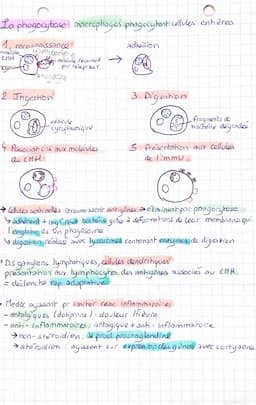 La phagocytose: macrophages phagocytent cellules entières
1. reconnaissance → adhésion
molécule
CMH
molécule reconnue
par récepteur
2 Ingestion
3. Digestion
vésicule
cytoplasmique
fragments de
bactérie dégradés
4 Associations aux molécules
du CMH
5 Présentation aux cellules
de l'immu
→ Cellules sentinelles reconnaissent antigènes → éliminent par phagocytose
↳ adhèrent + ingèrent bactérie grâce à déformations de leur membrane qui
l'englobe ds un phagosome
↳ digestion réalisée avec lysosomes contenant enzymes de digestion
• Ds ganglions lymphatiques, cellules dendritiques
présentation aux lymphocytes des antigènes associés au CMH
= déclenche rep adaptative
• Médoc agissent pr limiter réac inflammatoires:
- antalgiques (doliprane): douleur fièvre
- anti-inflammatoires: antalgique + anti-inflammatoire
→ non-stéroïdien: prod prostaglandine
→ stéroïdien: agissent sur expression des gènes avec cortisone